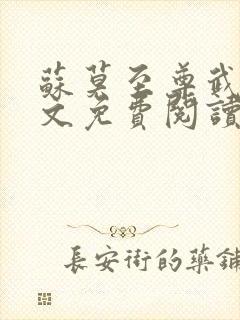 蘇莫至尊武
文免費閱讀
長安街的藥鋪